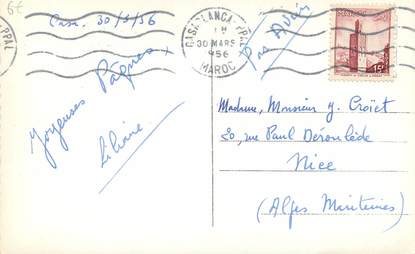 6€
Casa. 30/3/56
CASABLANCA-PPAL
30 MARS
1956
MAROC
Par Avion
15F
Joyeuses Pâques
Liliane
Madame, Monsieur J. Croïet
20, rue Paul Déroulède
Nice
(Alpes Maritimes)